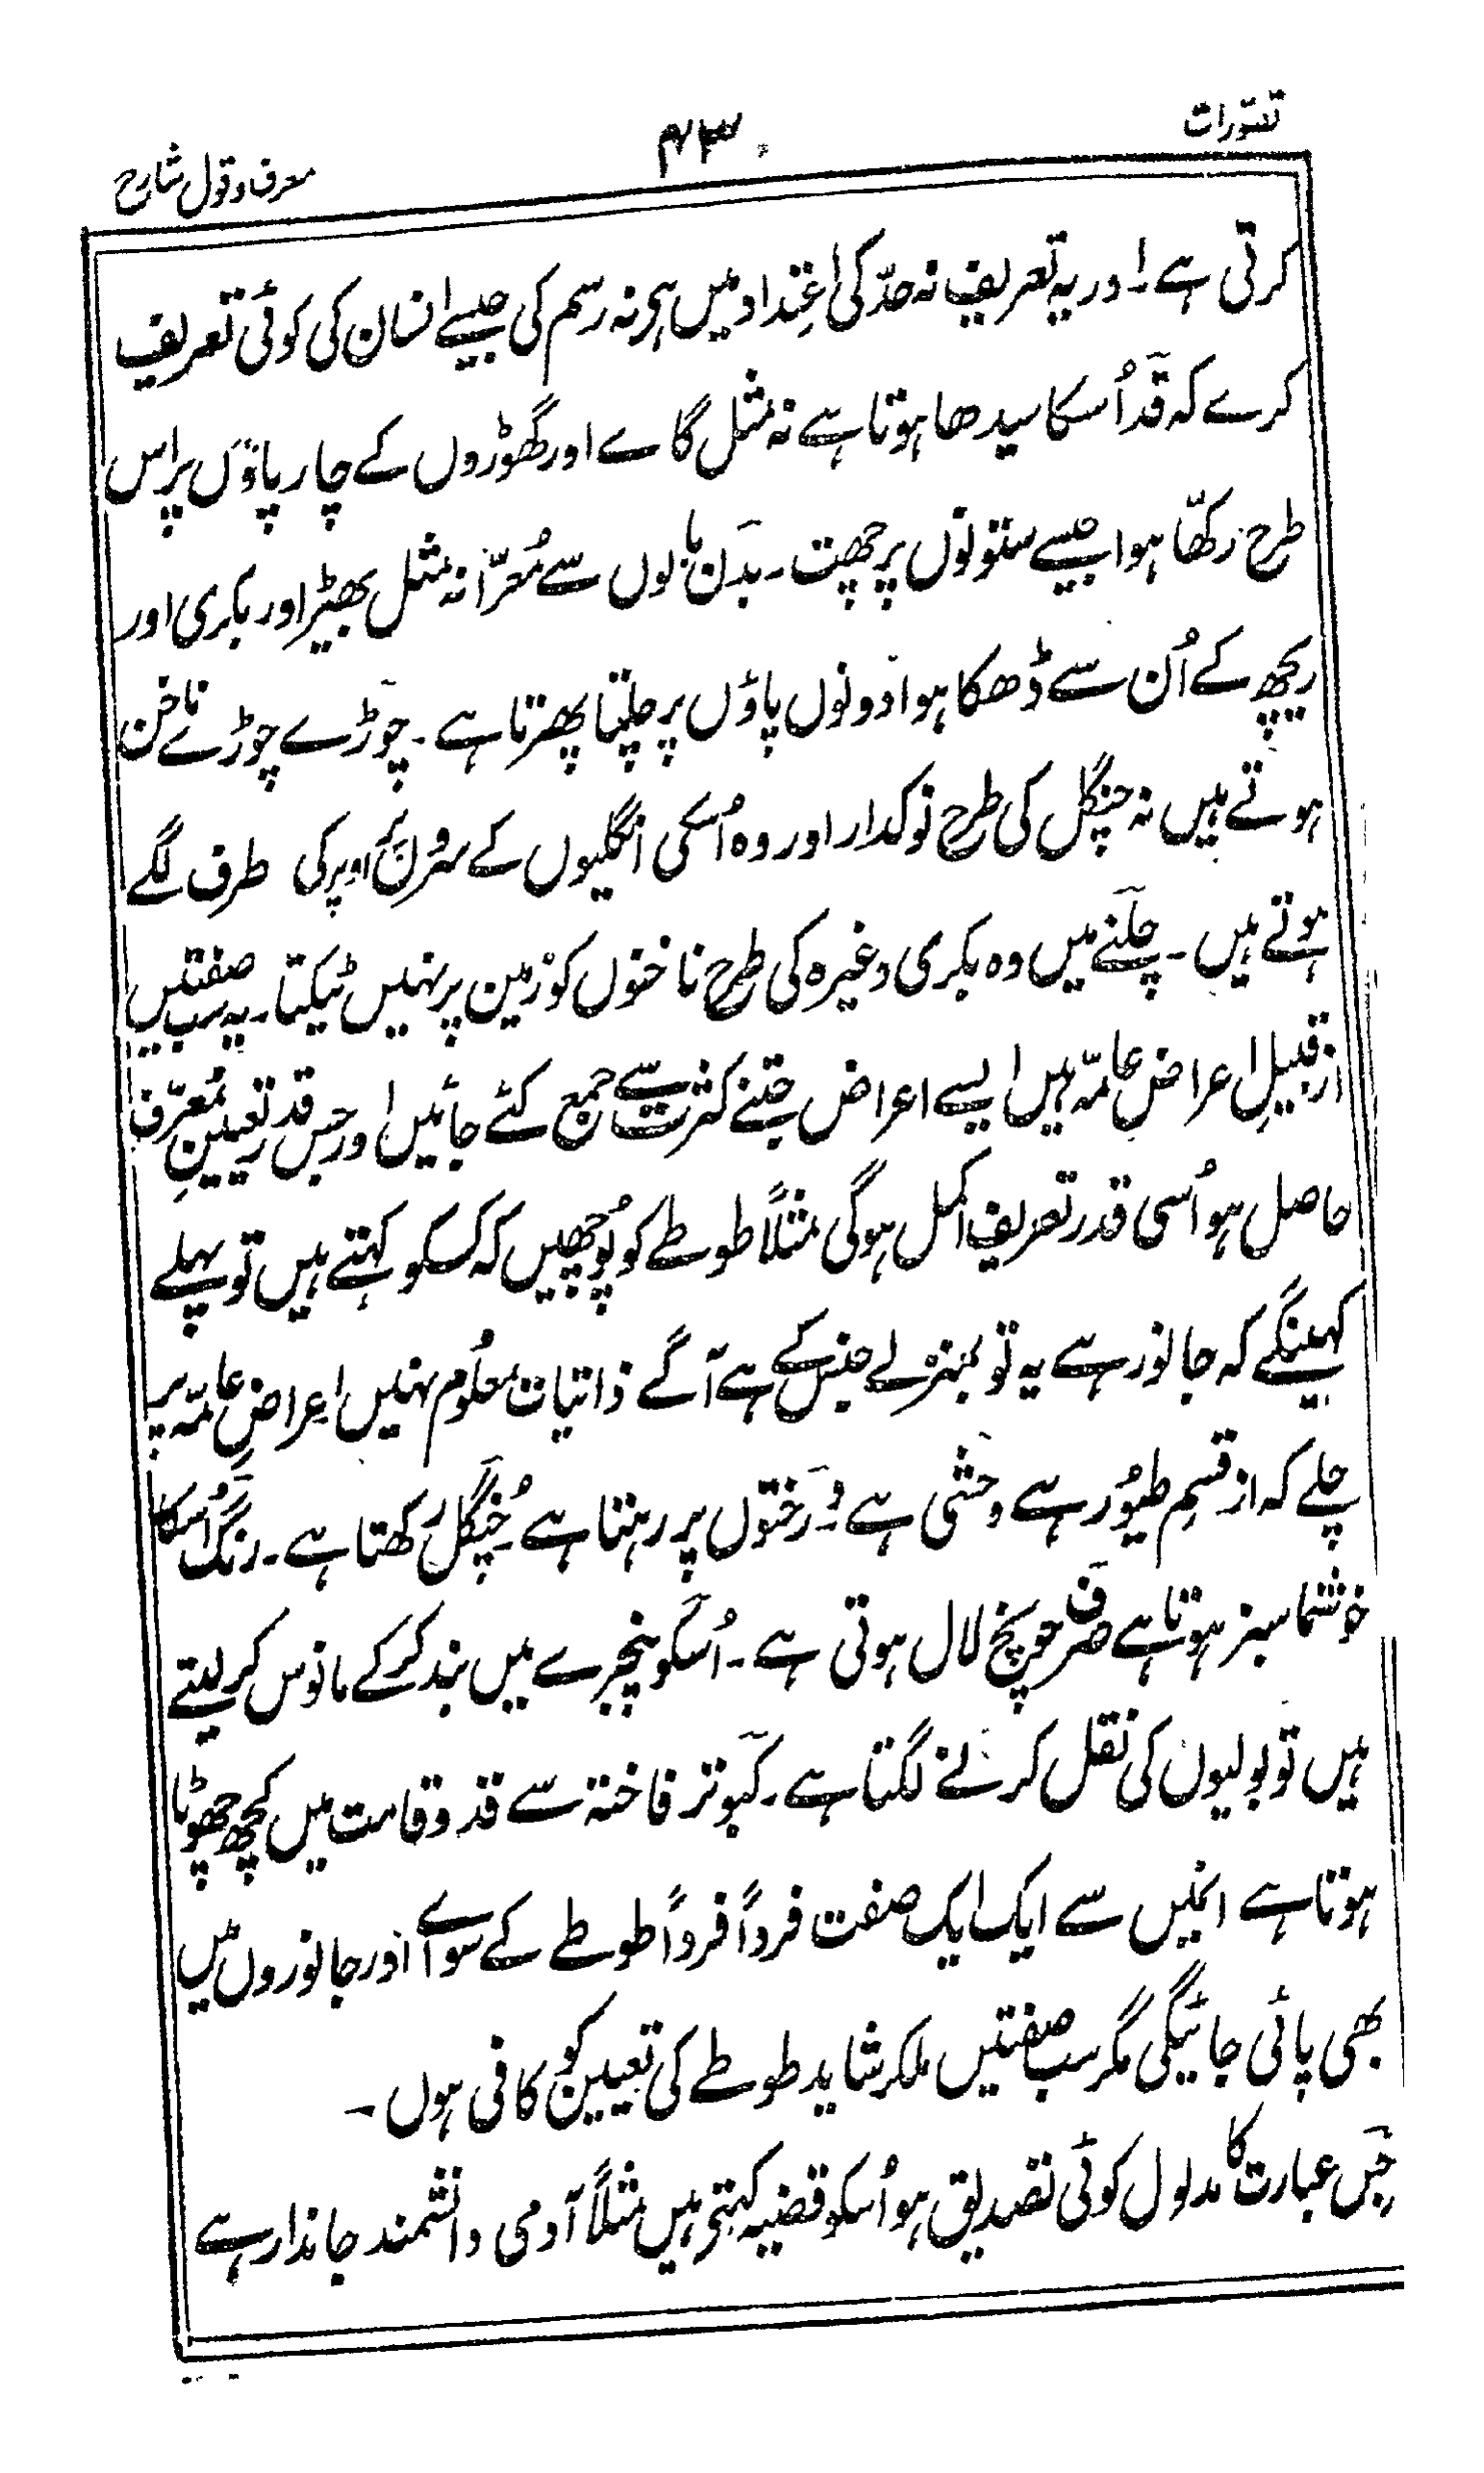 تصورات
۴۳
معرف و قول شارح
کرتی ہے۔ اور یہ تعریف نہ حدّ کی اعتداد میں ہی نہ رسم کی جیسے انسان کی کوئی تعریف
کرے کہ قد اُسکا سیدھا ہوتا ہے نہ مثل گاے اور گھوڑوں کے چار پاؤں پر اس
طرح رکھّا ہوا جیسے ستونوں پر چھت۔ بدن بالوں سے مُعرّا نہ مثل بھیڑ اور بکری اور
ریچھ کے اُن سے ڈھکا ہوا دونوں پاؤں پر چلتا پھرتا ہے۔ چوڑے چوڑے ناخن
ہوتے ہیں نہ چنگل کی طرح نوکدار اور وہ اُسکی انگلیوں کے سروں پر اوپر کی طرف لگے
ہوتے ہیں۔ چلنے میں وہ بکری وغیرہ کی طرح ناخنوں کو زمین پر نہیں ٹیکتا۔ یہ سب صفتیں
از قبیلِ اعراض عامّہ ہیں ایسے اعراض جتنے کثرت سے جمع کئے جائیں اور جس قدر تعیینِ مُعرّف
حاصل ہو اُسی قدر تعریف اکمل ہوگی مثلاً طوطے کو پُوچھیں کہ کسکو کہتے ہیں تو پہلے
کہینگے کہ جانور ہے یہ تو بمنزلے جنس کے ہے آگے ذاتیات معلُوم نہیں اعراضِ عامّہ پر
چلے کہ از قسمِ طیُور ہے وحشی ہے درختوں پر رہتا ہے۔ چُنگل رکھتا ہے۔ رنگ اُسکا
خوشنما سبز ہوتا ہے صرف چونچ لال ہوتی ہے۔ اُسکو پنجرے میں بند کر کے مانوس کر لیتے
ہیں تو بولیوں کی نقل کرنے لگتا ہے۔ کبوتر فاختہ سے قد و قامت میں کچھ چھوٹا
ہوتا ہے انمیں سے ایک ایک صفت فرداً فرداً طوطے کے سواے اور جانوروں میں
بھی پائی جائیگی مگر سب صفتیں ملکر شاید طوطے کی تعیین کو کافی ہوں۔
جس عبارت کا مدلول کوئی تصدیق ہو اُسکو قضیہ کہتی ہیں مثلاً آدمی دانشمند جاندار ہے